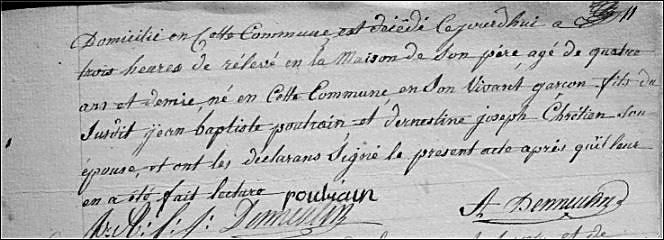 Domicilié en Cette Commune est décédé Cejourdhui a
trois heures de rélevé en la Maison de Son pére agé de quatre
ans et demie né en Cette Commune en Son Vivant garçon fils du
Susdit jean baptiste poutrain et dernestine joseph Chrétien Son
épouse, et ont les déclarans Signé le present acte après qu'il leur
en a été fait lecture poutrain
Demeulin A Demeulin